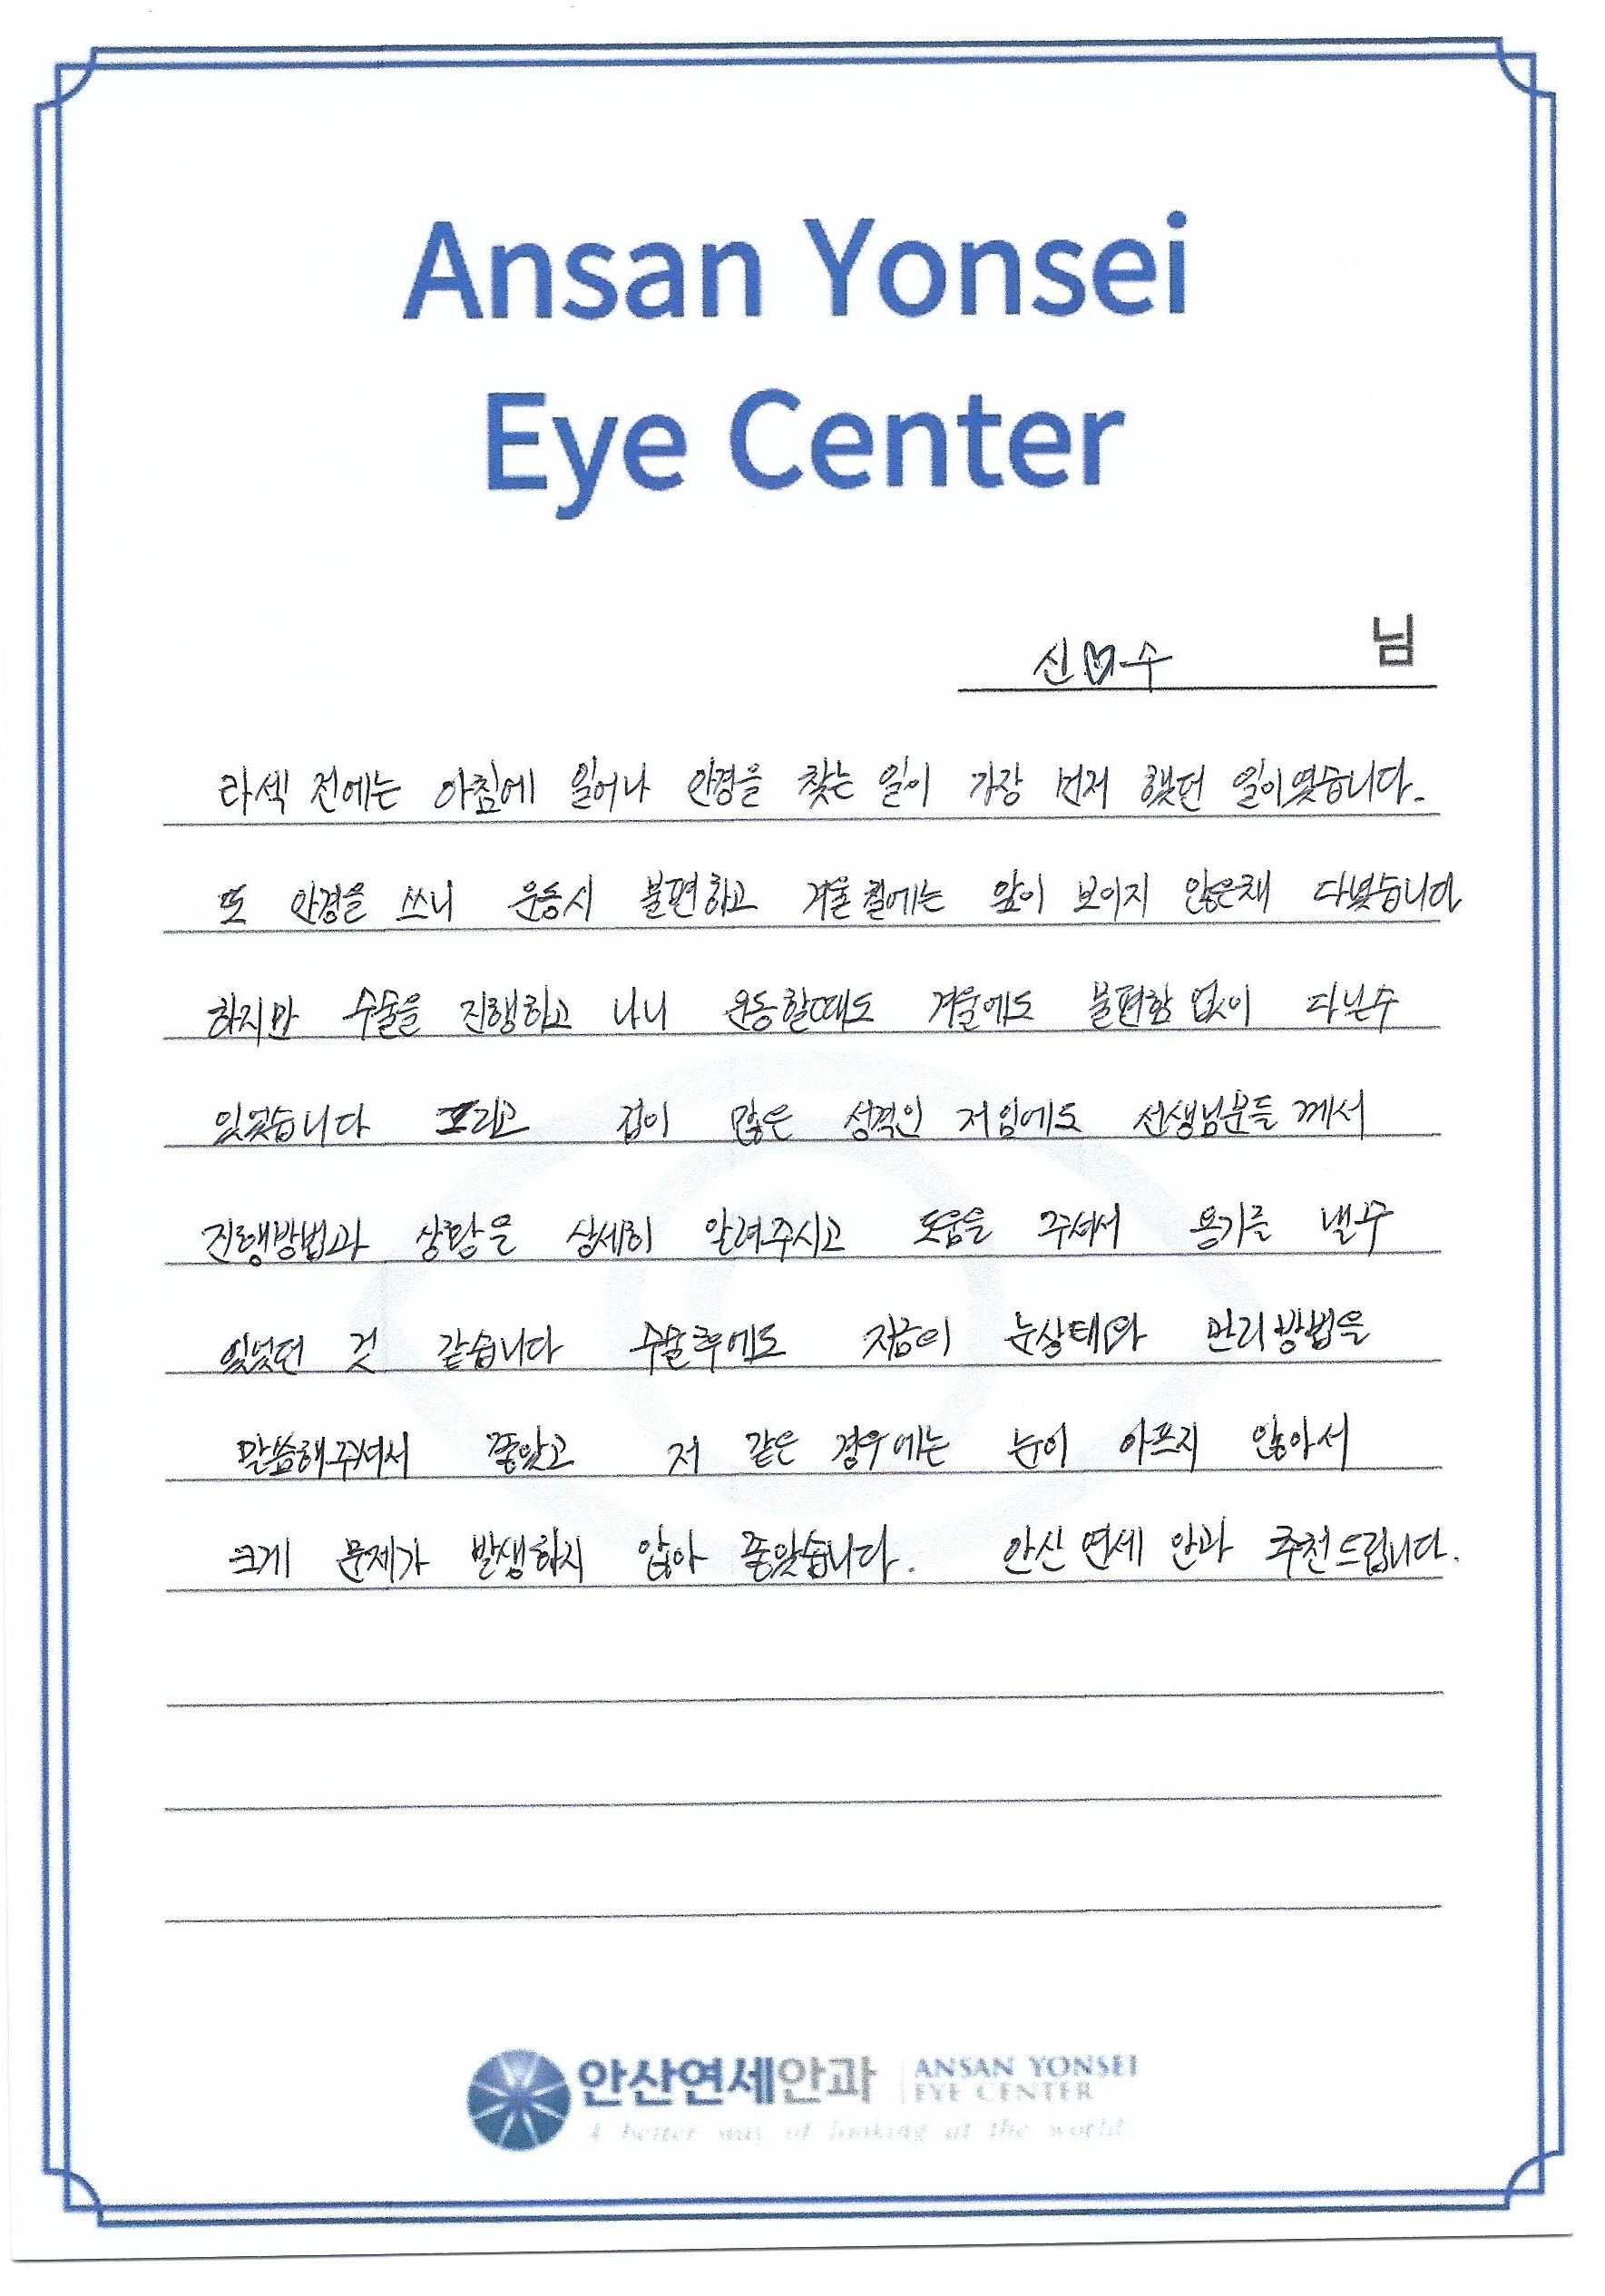 Ansan Yonsei
Eye Center
신♡수 님
라섹 전에는 아침에 일어나 안경을 찾는 일이 가장 먼저 했던 일이였습니다.
또 안경을 쓰니 운동시 불편하고 겨울철에는 앞이 보이지 않은채 다녔습니다
하지만 수술을 진행하고 나니 운동할때도 겨울에도 불편함 없이 다닌수
있었습니다 그리고 겁이 많은 성격인 저임에도 선생님분들 께서
진행방법과 상황을 상세히 알려주시고 도움을 주셔서 용기를 낼수
있었던 것 같습니다 수술후에도 지금이 눈상태와 관리방법을
말씀해주셔서 좋았고 저 같은 경우에는 눈이 아프지 않아서
크게 문제가 발생하지 않아 좋았습니다. 안산 연세 안과 추천드립니다.
안산연세안과 ANSAN YONSEI
EYE CENTER
A better way of looking at the world